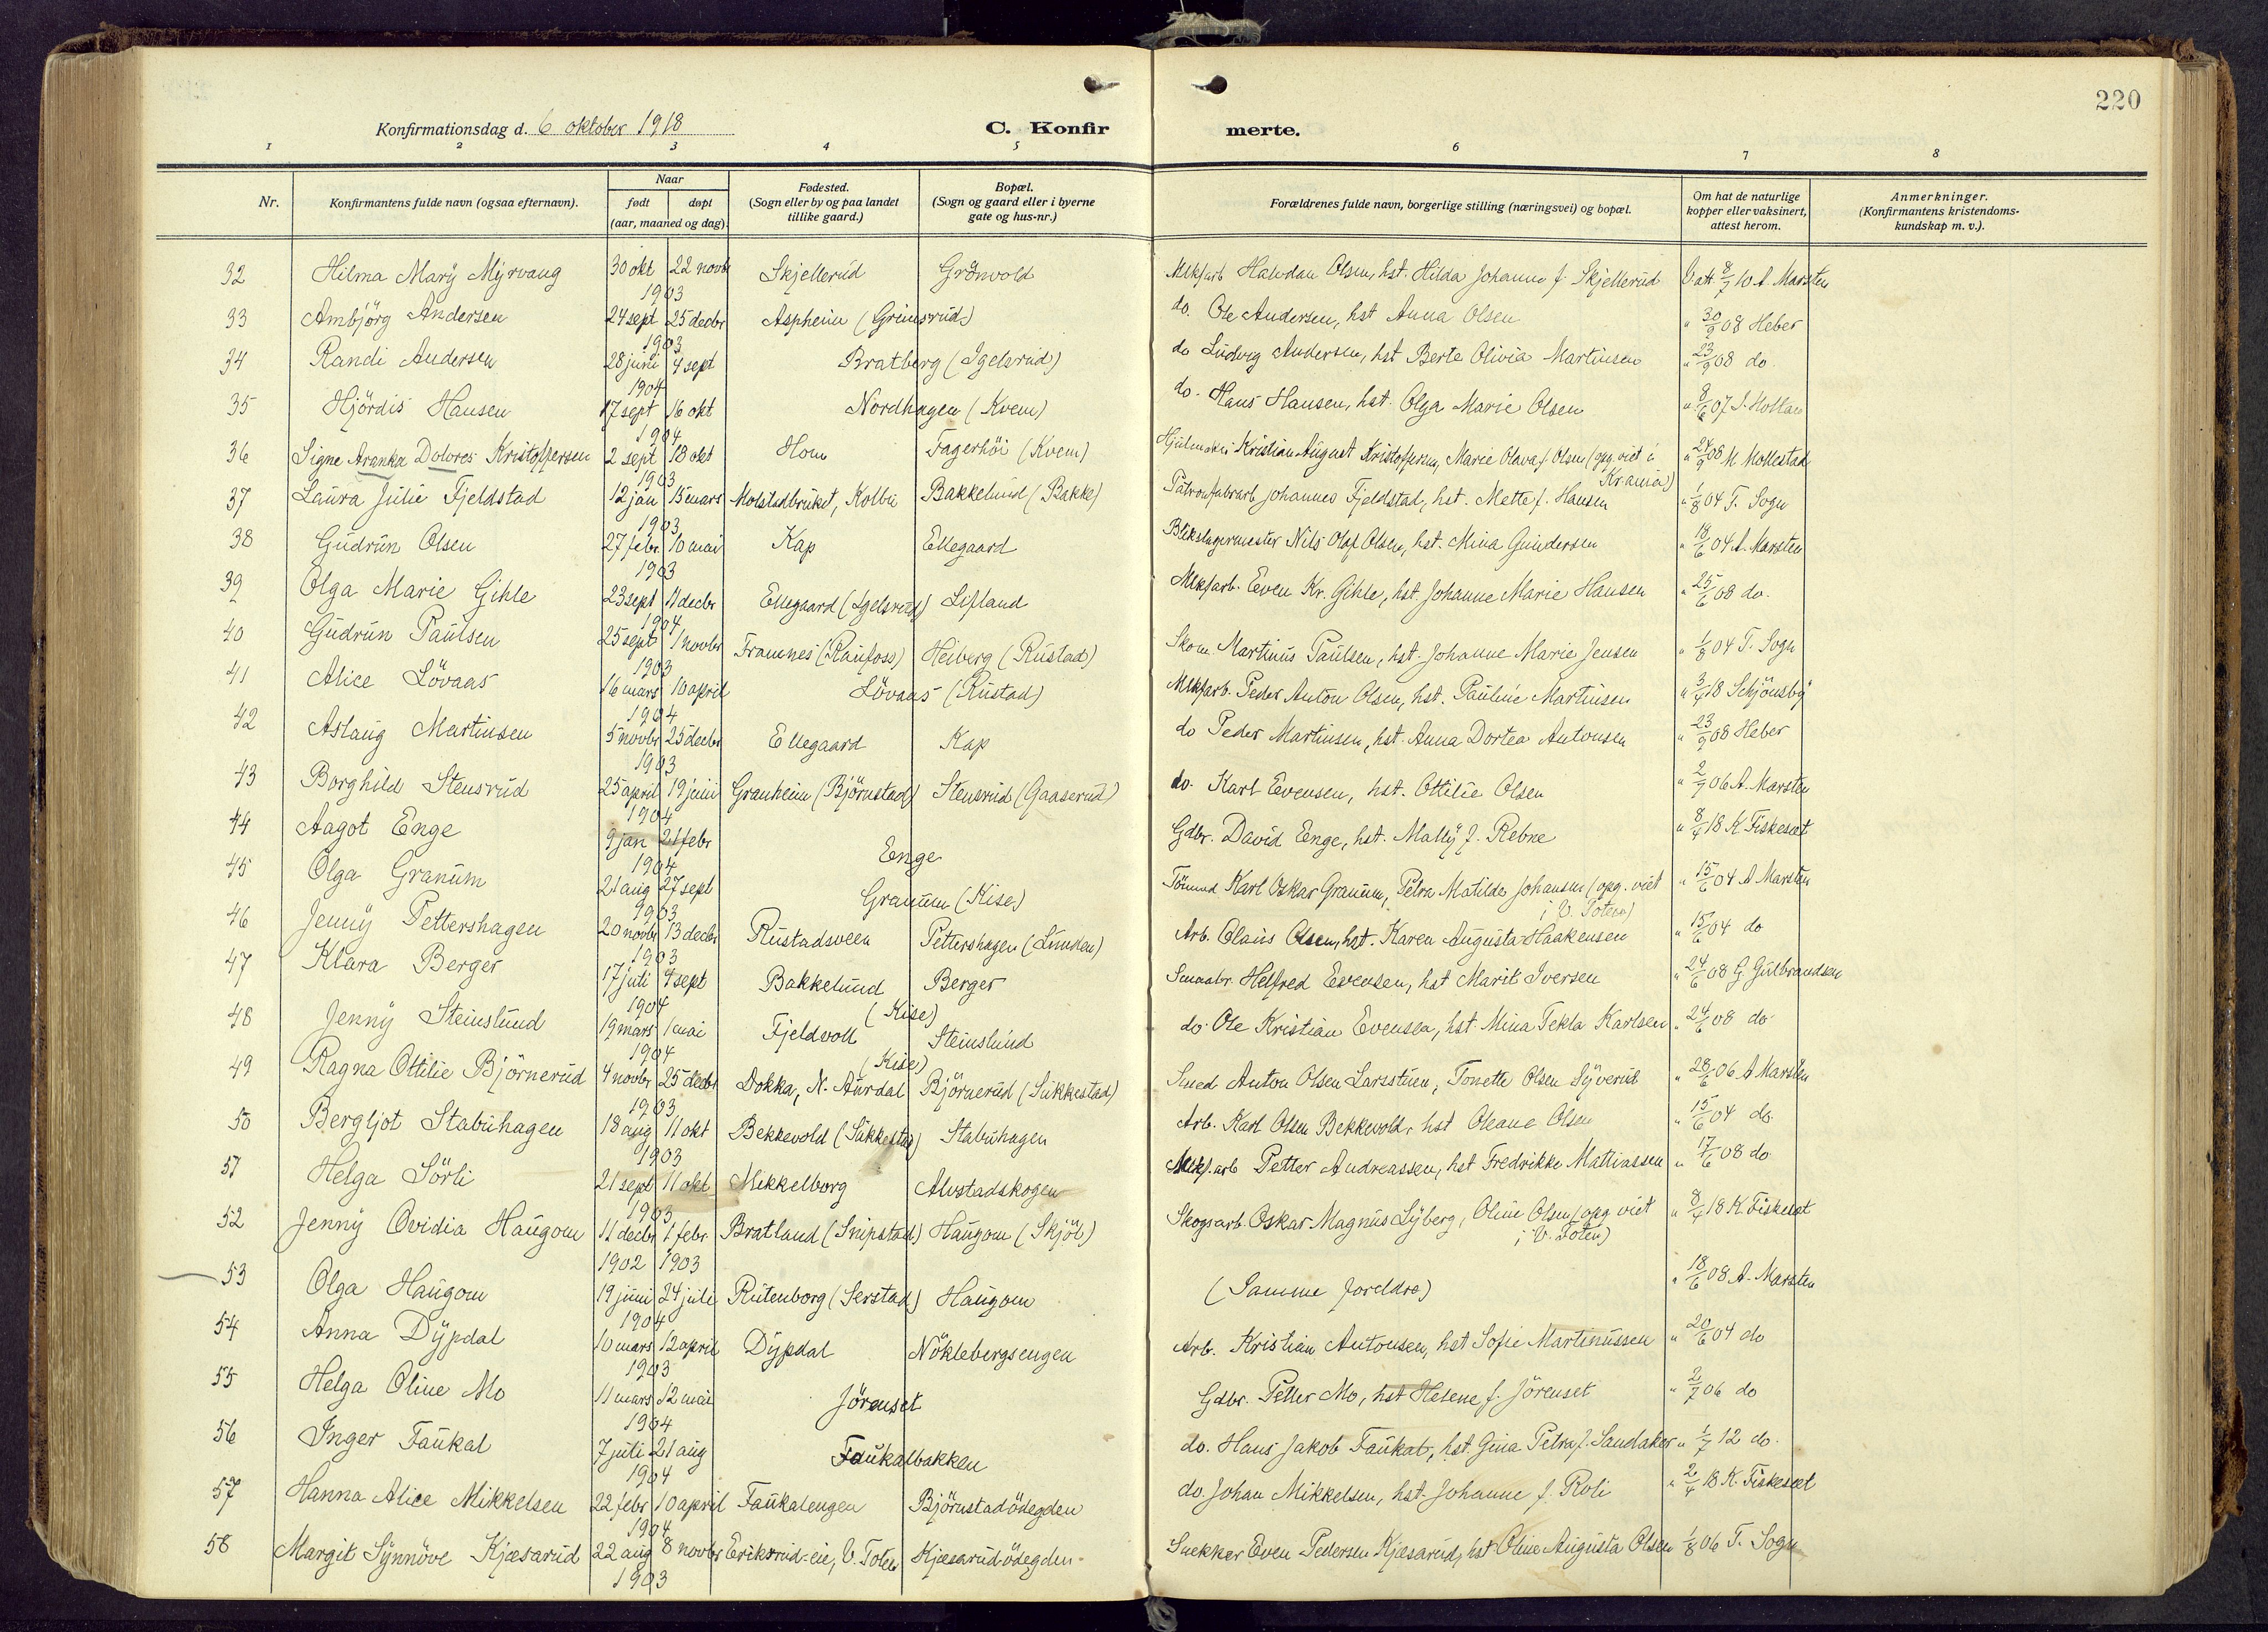 220
Konfirmationsdag d. 6 oktober 1918
C. Konfir
merte.
1 2 3 4 5 6 7 8
Nr.
Konfirmantens fulde navn (ogsaa efternavn).
Naar
født døpt
(aar, maaned og dag).
Fødested.
(Sogn eller by og paa landet
tillike gaard.)
Bopæl.
(Sogn og gaard eller i byerne
gate og hus-nr.)
Forældrenes fulde navn, borgerlige stilling (næringsvei) og bopæl.
Om hat de naturlige
kopper eller vaksinert,
attest herom.
Anmerkninger.
(Konfirmantens kristendoms-
kundskap m. v.).
32 Hilma Mary Myrvang 30 okt 22 novbr Skjellerud Grönvold Mlkfarb Halvdan Olsen, hst. Hilda Johanne f. Skjellerud 8/7 10 A. Marsten
1903
33 Ambjörg Andersen 24 sept 25 decbr Aspheim (Grimsrud) do. Ole Andersen, hst Anna Olsen " 30/9 08 Heber
1903
34 Randi Andersen 28 juni 4 sept Bratberg (Igelsrud) do Ludvig Andersen, hst Berte Olivia Martinsen " 23/9 08 do
1904
35 Hjördis Hansen 17 sept 16 okt Nordhagen (Kvem) do. Hans Hansen, hst. Olga Marie Olsen " 8/6 07
1904
36 Signe Aranka Dolores Kristoffersen 2 sept 18 okt Hom Fagerhöi (Kvem) Kristian August Kristoffersen, Marie Olava f. Olsen (opg. viet i " 24/9 08 M Mollestad
1903 Krania)
37 Laura Julie Fjeldstad 12 jan 15 mars Molstadbruket, Kolbu Bakkelund (Bakke) Patronfabrarb Johannes Fjeldstad, hst. Mette f. Hansen " 1/8 04 T. Sogn
1903
38 Gudrun Olsen 27 febr. 10 mai Kap Ellegaard Blikslagermester Nils Olaf Olsen, hst. Mina Gundersen " 18/6 04 A. Marsten
1903
39 Olga Marie Gihle 23 sept 11 decbr Ellegaard (Igelsrud) Lifland Mlkfarb. Even Kr. Gihle, hst. Johanne Marie Hansen " 25/6 08 do.
1904
40 Gudrun Paulsen 25 sept 1 novbr Framnes (Raufoss) Heiberg (Rustad) Skom. Martinus Paulsen, hst. Johanne Marie Jensen " 1/8 04 T. Sogn
1903
41 Alice Lövaas 16 mars 10 april Lövaas (Rustad) Mlkfarb. Peder Anton Olsen, hst. Pauline Martinsen " 3/4 18 Schjönsby
1904
42 Aslaug Martinsen 5 novbr 25 decbr Ellegaard Kap do Peder Martinsen, hst. Anna Dortea Antonsen " 23/9 08 Heber
1903
43 Borghild Stensrud 25 april 19 juni Granheim (Björnstad) Stensrud (Gaaserud) do. Karl Evensen, hst. Ottilie Olsen " 2/7 06 A. Marsten
1904
44 Aagot Enge 9 jan 21 febr Enge Gdbr. David Enge, hst. Mally f. Rebne " 8/4 18 K Fiskeset
1904
45 Olga Granum 21 aug 27 sept Granum (Kise) Tömmd Karl Oskar Granum, Petra Matilde Johansen (opg. viet " 15/6 04 A Marsten
1903 i V. Toten)
46 Jenny Pettershagen 20 novbr 13 decbr Rustadsveen Pettershagen (Linden) Arb. Olaus Olsen, hst. Karen Augusta Haakensen " 15/6 04 do
1903
47 Klara Berger 17 juli 4 sept Bakkelund Berger Smaabr. Helfred Evensen, hst Marit Iversen " 24/6 08 G. Gulbrandsen
1904 (Kise)
48 Jenny Steinslund 19 mars 1 mai Fjeldvoll Steinslund do. Ole Kristian Evensen, hst. Mina Tekla Karlsen " 24/6 08 do
1904 (Kise)
49 Ragna Ottilie Björnerud 4 novbr 25 decbr Dokka, N. Aurdal Björnerud (Sukkestad) Smed Anton Olsen Larsstuen, Tonette Olsen Syverud " 28/6 06 A Marsten
1903
50 Bergljot Stabuhagen 18 aug 11 okt Bekkevold (Sukkestad) Stabuhagen Arb. Karl Olsen Bekkevold, hst Oleane Olsen " 15/6 04 do
1903
51 Helga Sörli 21 sept 11 okt Mikkelborg Alvstadskogen Mlkf.arb Petter Andreassen, hst Fredrikke Mattiassen " 17/6 08 do
1903
52 Jenny Ovidia Haugom 11 decbr 1 febr. Bratland (Snipstad) Haugom (Skjöl) Skogsarb. Oskar Magnus Lyberg, Oline Olsen (opg viet " 8/4 18 K. Fiskeset
1902 1903 i V. Toten)
53 Olga Haugom 19 juni 24 juli Rutenborg (Serstad) Haugom (Samme foreldre) " 18/6 08 A. Marsten
1904
54 Anna Dypdal 10 mars 12 april Dypdal Nöklebergsengen Arb. Kristian Antonsen, hst Sofie Martinussen " 20/6 04 do
1903
55 Helga Oline Mo 11 mars 12 mai Jörenset Gdbr. Petter Mo, hst Helene f. Jörenset " 2/7 06 do
1904
56 Inger Faukal 7 juli 21 aug Faukalbakken do. Hans Jakob Faukal, hst. Gina Petra f. Sandaker " 1/7 12 do.
1904
57 Hanna Alice Mikkelsen 22 febr 10 april Faukalengen Björnstadödegden do. Johan Mikkelsen, hst. Johanne f. Roli " 2/4 18 K. Fiskeset
1904
58 Margit Synnöve Kjæsarud 22 aug 8 novbr Eriksrud-eie, V. Toten Kjæsarudödegden Snekker Even Pedersen Kjæsarud, hst Oline Augusta Olsen 1/8 06 T. Sogn
1903